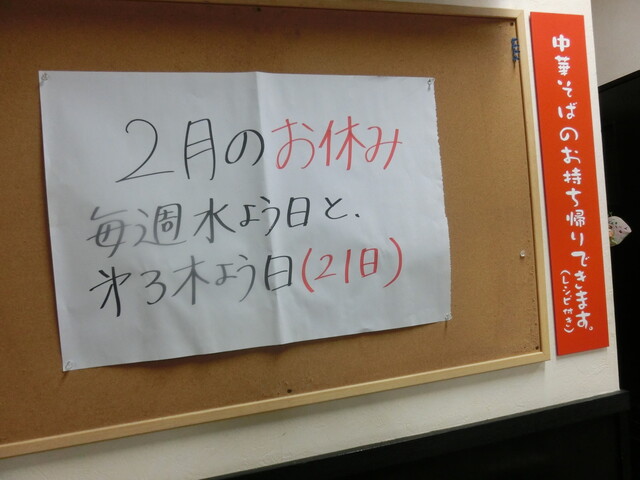 2月のお休み
毎週水よう日と、
㐧3木よう日(21日)
中華そばのお持ち帰りできます。
(レシピ付き)